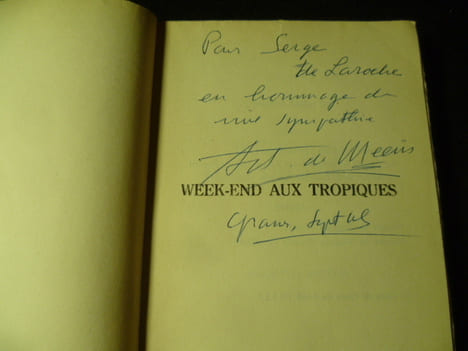 Pour Serge
de Laroche
en hommage de
vive sympathie
Art. de Meeüs
WEEK-END AUX TROPIQUES
Sept